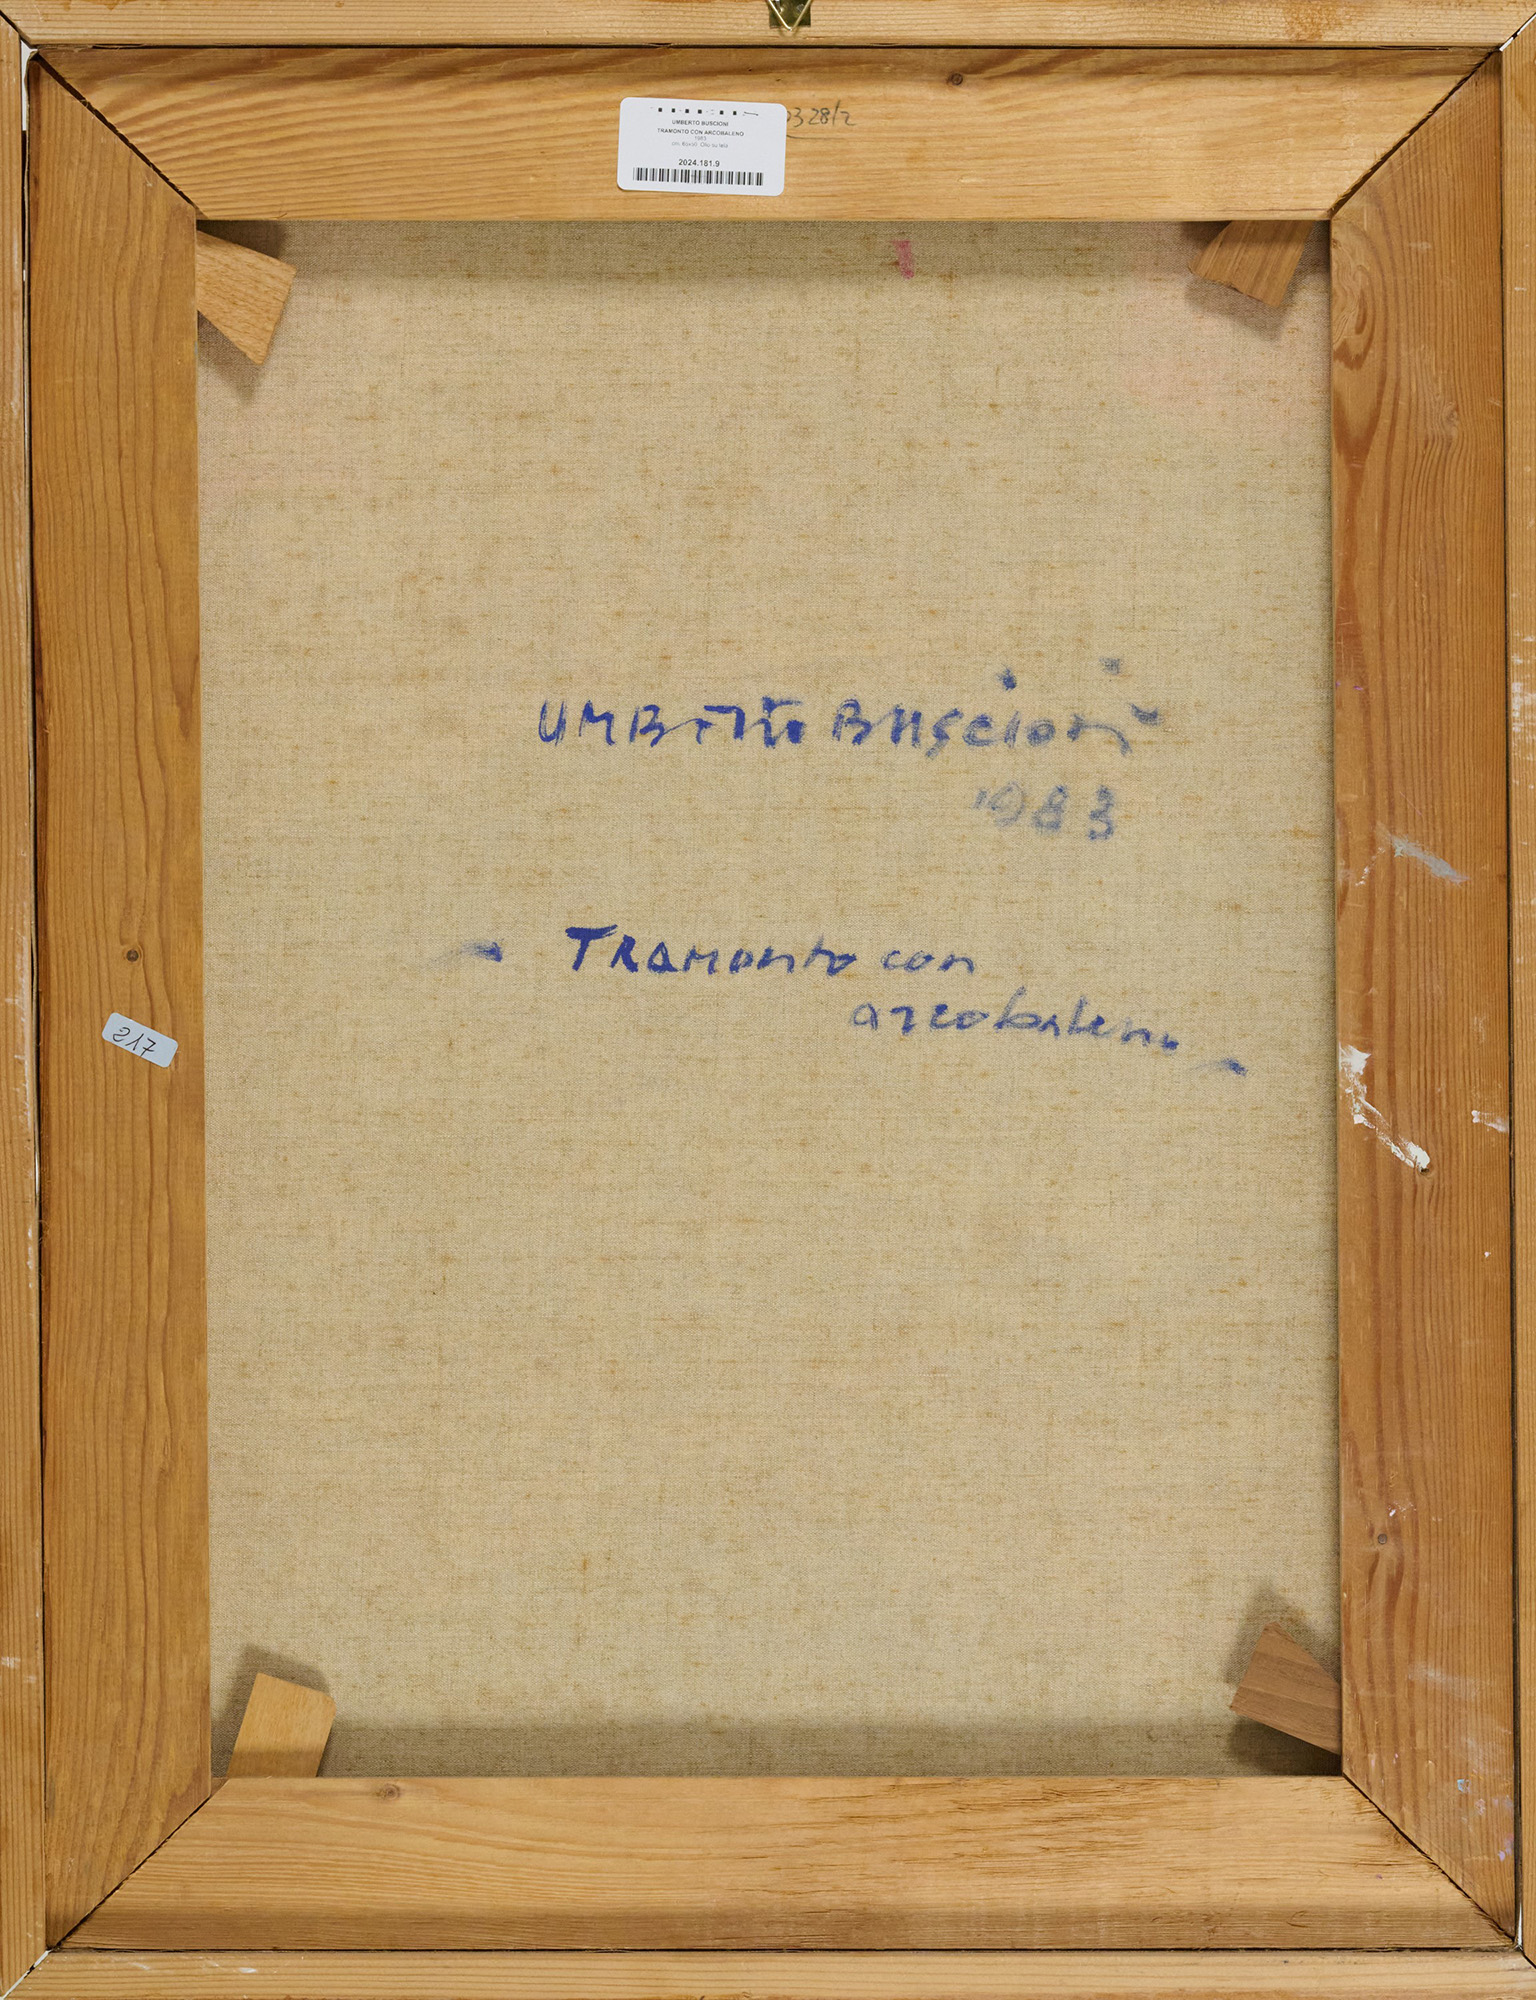 UMBERTO BUSCIONI
TRAMONTO CON ARCOBALENO
1983
Olio su tela
2024.181.9
328/2
UMBERTO BUSCIONI
1983
- TRAMONTO con
arcobaleno -
217